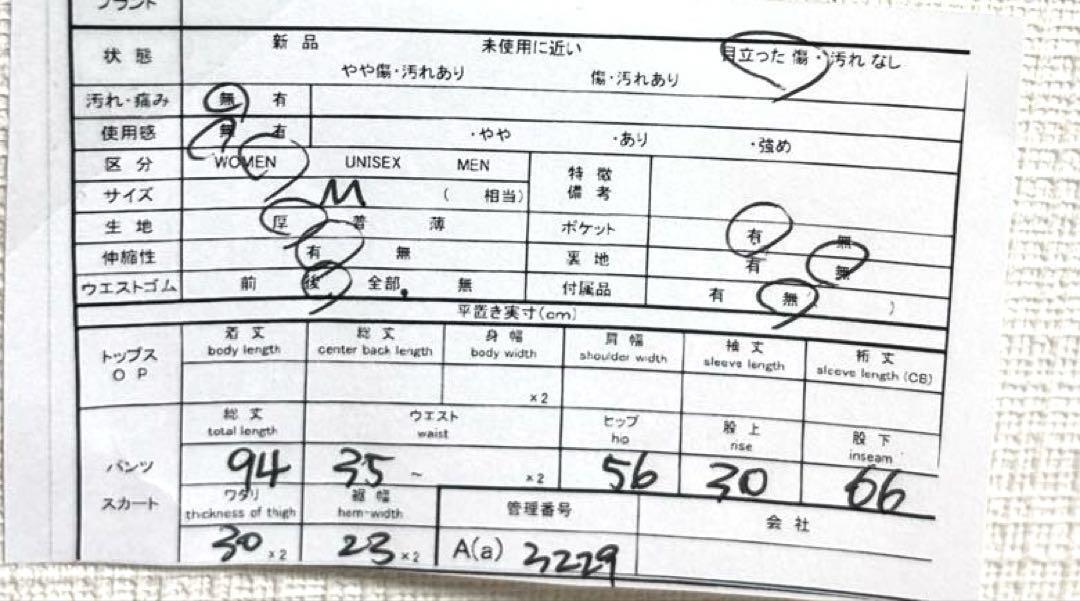 ブランド
状態 新品 未使用に近い 目立った傷・汚れなし
やや傷・汚れあり 傷・汚れあり
汚れ・痛み 無 有
使用感 無 有 ・やや ・あり ・強め
区分 WOMEN UNISEX MEN 特徴
備考
サイズ M ( 相当)
生地 厚 普 薄 ポケット 有 無
伸縮性 有 無 裏地 有 無
ウエストゴム 前 後 全部 無 付属品 有 無 )
平置き実寸(cm)
トップス
OP
着丈 総丈 身幅 肩幅 袖丈 裄丈
body length center back length body width shoulder width sleeve length sleeve length (CB)
×2
パンツ
スカート
総丈 ウエスト ヒップ 股上 股下
total length waist hip rise inseam
94 35 ~ ×2 56 30 66
ワタリ 裾幅 管理番号 会社
thickness of thigh hem-width
30 ×2 23 ×2 A(a) 3229